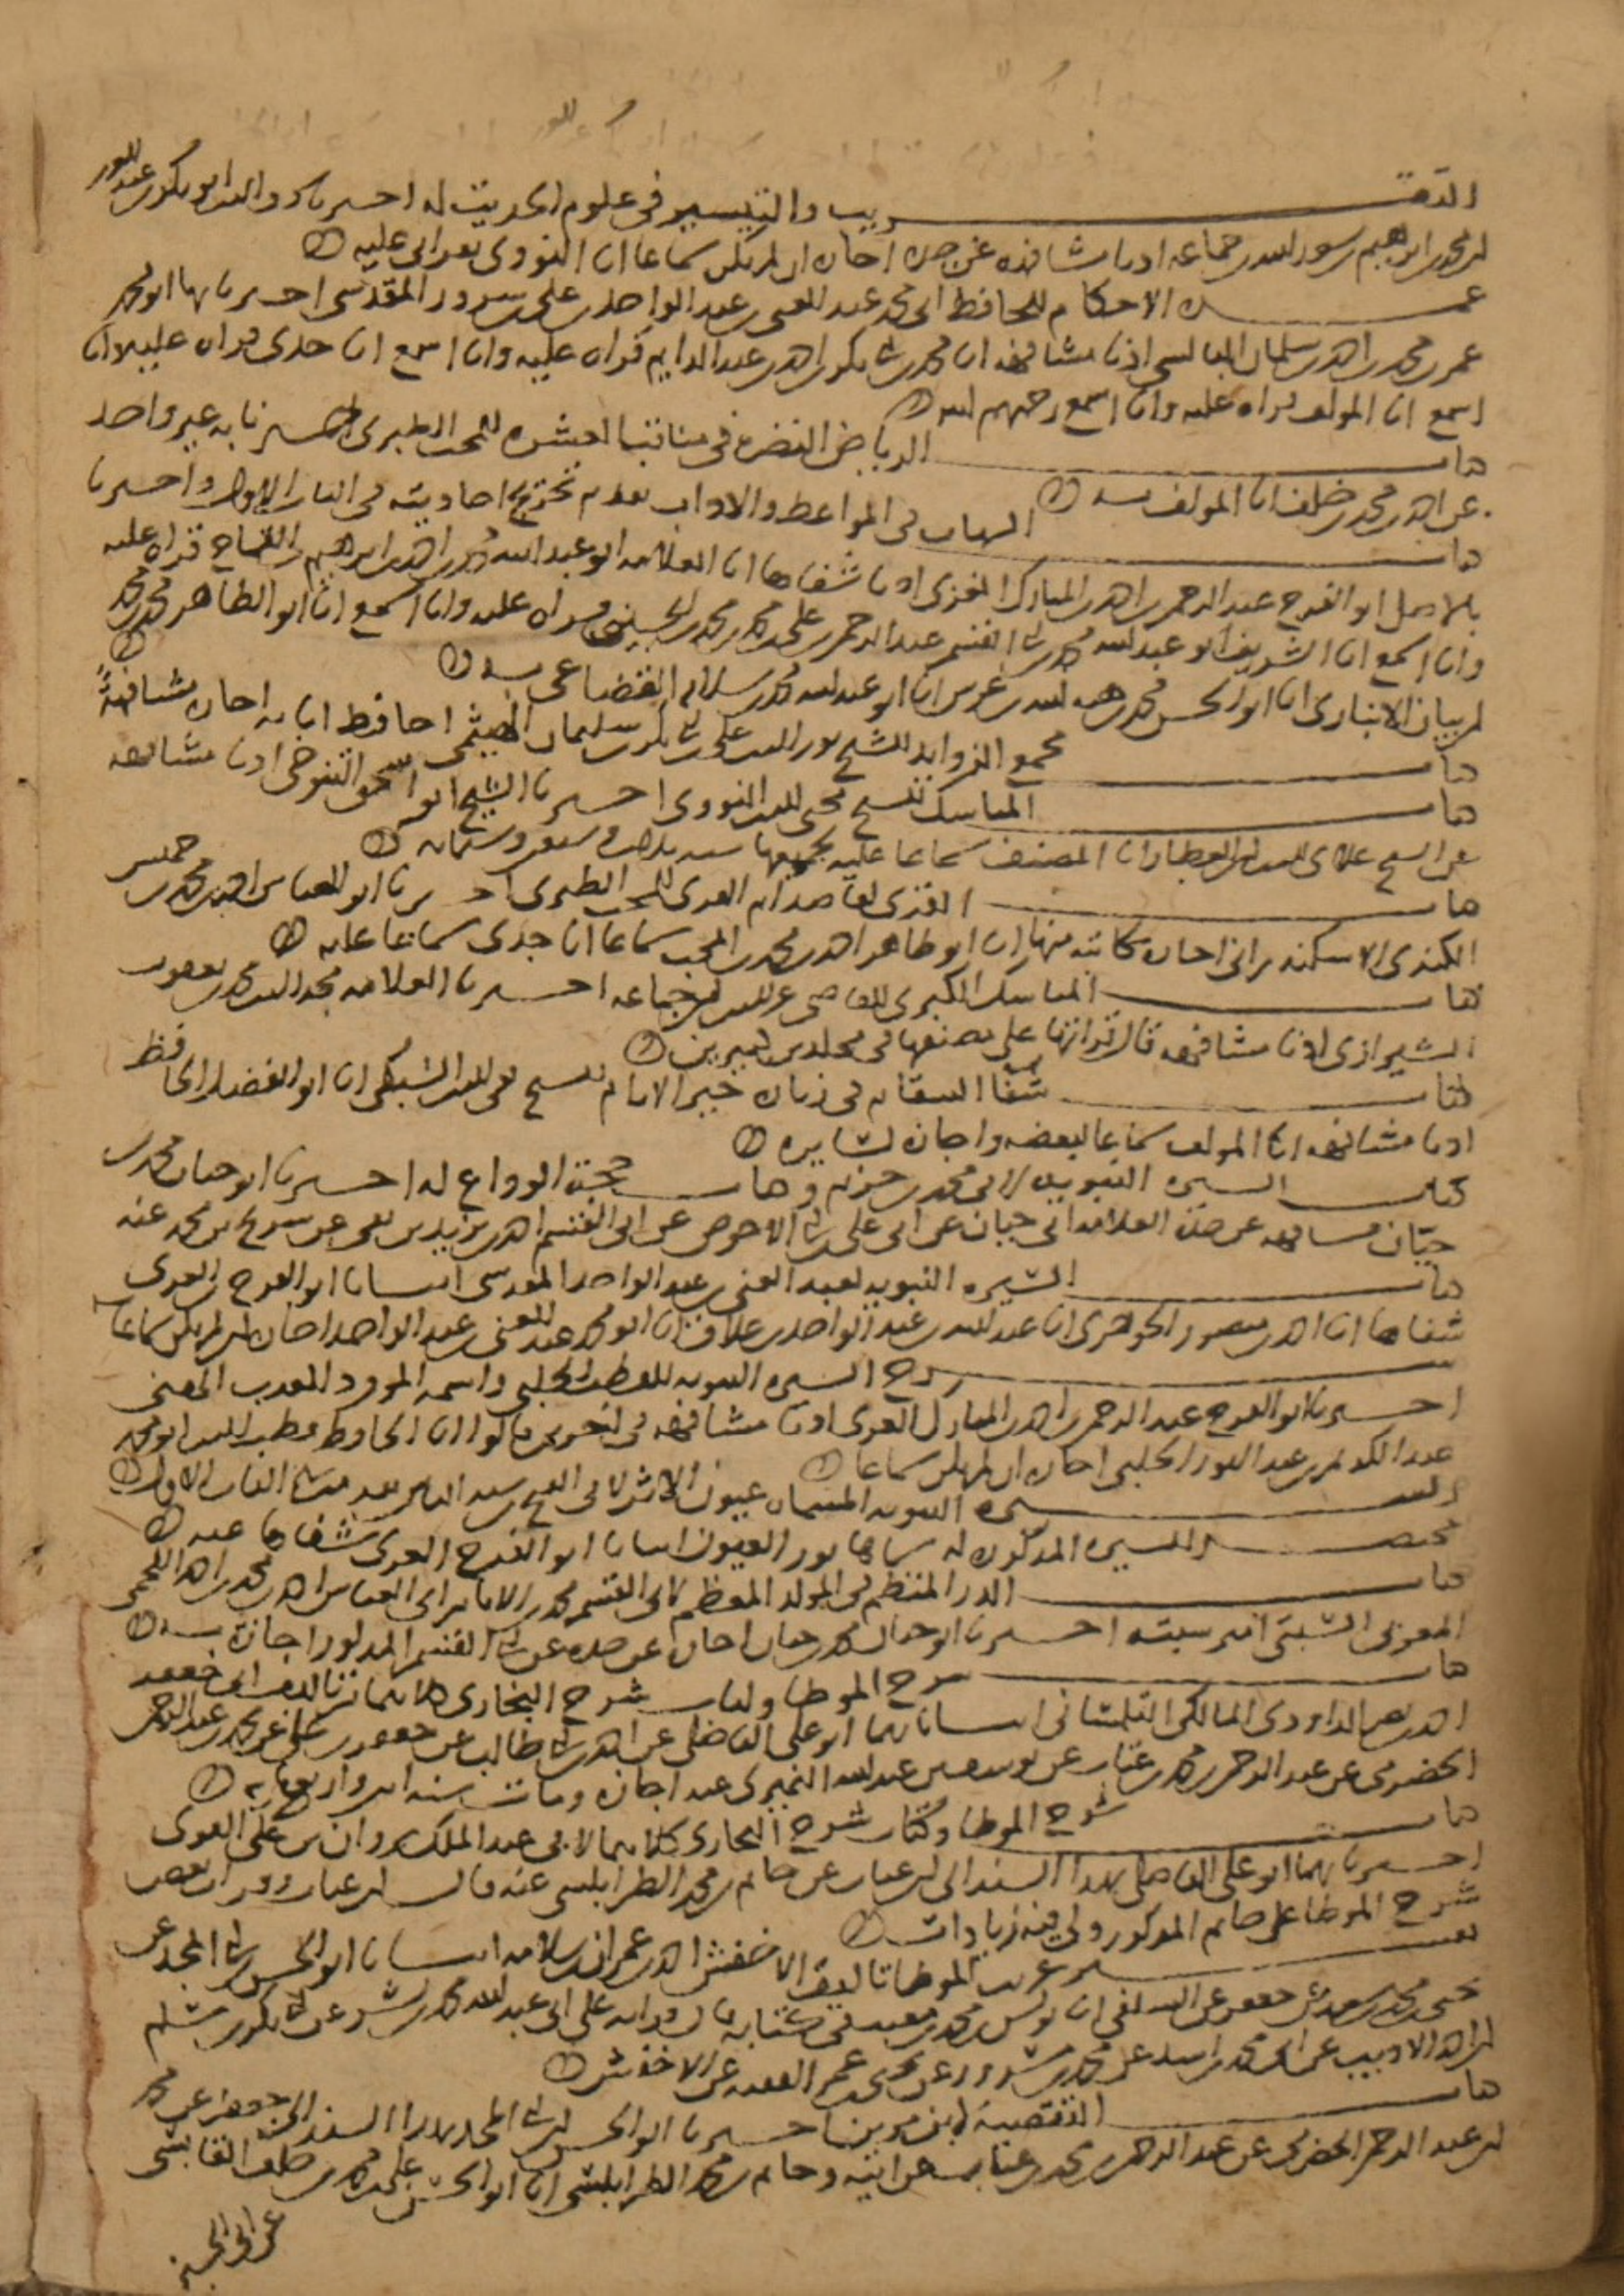 التقريب والتيسير في علوم الحديث له اخبرنا به والده ابو بكر بن عبد العزيز
بن محمد بن ابرهيم بن سعد الله بن جماعة اذنا مشافهة عن جده اجازة ان لم يكن سماعا انا النووي بقراتي عليه
عمدة الاحكام للحافظ ابي محمد عبد الغني بن عبد الواحد بن علي بن سرور المقدسي اخبرنا بها ابو محمد
عمر بن محمد بن احمد بن سلمان البالسي اذنا مشافهة انا محمد بن ابي بكر بن احمد بن عبد الدايم قراة عليه وانا اسمع انا جدي قراة عليه وانا
اسمع انا المولف قراة عليه وانا اسمع رحمهم الله
كتاب الرياض النضرة في مناقب العشرة للمحب الطبري اخبرنا به غير واحد
عن احمد بن محمد بن خلف انا المولف به
كتاب الشهاب في المواعظ والاداب تقدم تخريج احاديثه في الباب الاول واخبرنا
بالاصل ابو الفرج عبد الرحمن بن احمد بن المبارك الغزي اذنا شفاها انا العلامة ابو عبد الله محمد بن احمد بن ابرهيم بن القماح قراة عليه
وانا اسمع انا الشريف ابو عبد الله محمد بن ابي القسم عبد الرحمن بن علي بن محمد بن محمد الحسيني قراة عليه وانا اسمع انا ابو الطاهر محمد بن محمد
بن بيان الانباري انا ابو الحسن محمد بن هبة الله بن عرس انا ابو عبد الله محمد بن سلامة القضاعي به
كتاب مجمع الزوايد للشيخ نور الدين علي بن ابي بكر بن سليمان الهيثمي الحافظ انا به اجازة مشافهة
كتاب المناسك للشيخ محي الدين النووي اخبرنا الشيخ ابو اسحق التنوخي اذنا مشافهة
عن الشيخ علاي الدين بن العطار انا المصنف سماعا عليه بجميعها سنة ثلاث وسبعين وستمائة
كتاب القرى لقاصد ام القرى للمحب الطبري اخبرنا ابو العباس احمد بن محمد بن خميس
الكندي الاسكندراني اجازة مكاتبة منها انا ابو طاهر احمد بن محمد بن المحب سماعا انا جدي سماعا عليه
كتاب المناسك الكبرى للقاضي عز الدين بن جماعة اخبرنا العلامة مجد الدين محمد بن يعقوب
الشيرازي اذنا مشافهة قال قراتها على مصنفها في مجلدين كبيرين
كتاب شفا السقام في زيارة خير الانام للشيخ تقي الدين السبكي انا ابو الفضل بن الحافظ
اذنا مشافهة انا المولف سماعا لبعضه واجازة لسايره
كتاب السيرة النبوية لابي محمد بن حزم وكتاب حجة الوداع له اخبرنا ابو حيان محمد بن
حيان مشافهة عن جده العلامة ابي حيان عن ابي علي بن ابي الاحوص عن ابي القسم احمد بن يزيد بن بقي عن شريح بن محمد عنه
كتاب السيرة النبوية لعبد الغني بن عبد الواحد المقدسي انبانا ابو الفرج بن الغزي
شفاها انا احمد بن منصور الجوهري انا عبد الله بن عبد الواحد بن علاق انا ابو محمد عبد الغني بن عبد الواحد اجازة ان لم يكن سماعا
شرح السيرة النبوية للقطب الحلبي واسمه المورد العذب الهني
اخبرنا ابو الفرج عبد الرحمن بن احمد بن المبارك الغزي اذنا مشافهة في اخرين قالوا انا الحافظ قطب الدين ابو محمد
عبد الكريم بن عبد النور الحلبي اجازة ان لم يكن سماعا
السيرة النبوية المسماة عيون الاثر لابي الفتح بن سيد الناس تقدمت في الباب الاول
مختصر السيرة المذكورة له سماها نور العيون انبانا ابو الفرج الغزي شفاها عنه
كتاب الدر المنظم في المولد المعظم لابي القسم محمد بن الامام ابي العباس احمد بن محمد بن احمد اللخمي
العزفي السبتي امير سبتة اخبرنا ابو حيان محمد بن حيان اجازة عن جده عن ابي القسم المذكور اجازة به
كتاب شرح الموطا وكتاب شرح البخاري كلاهما تاليف ابي جعفر
احمد بن نصر الداودي المالكي التلمساني انبانا بهما ابو علي الفاضلي عن احمد بن ابي طالب عن جعفر بن علي عن محمد بن عبد الرحمن
الحضرمي عن عبد الرحمن بن محمد بن عتاب عن يوسف بن عبد الله النميري عنه اجازة ومات سنة اثنين واربعمائة
كتاب شرح الموطا وكتاب شرح البخاري كلاهما لابي عبد الملك مروان بن علي البوني
اخبرنا بهما ابو علي الفاضلي بهذا السند الى ابن عتاب عن حاتم بن محمد الطرابلسي عنه قال ابن عتاب وقرات بعض
شرح الموطا على حاتم المذكور ولي فيه زيادات
تفسير غريب الموطا تاليف الاخفش احمد بن عمران بن سلامة انبانا ابو الحسن بن ابي المجد عن
يحيى بن محمد بن سعد عن جعفر عن السلفي انا يونس بن محمد بن مغيث في كتابه قال قراته على ابي عبد الله محمد بن بشر عن ابي بكر بن مسلم
بن احمد الاديب عن ابي محمد بن اسد عن محمد بن مسرور عن يحيى بن عمر الفقيه عن الاخفش
كتاب التقصية لابن مزين اخبرنا ابو الحسن بن ابي المجد بهذا السند الى جعفر عن محمد
بن عبد الرحمن الحضرمي عن عبد الرحمن بن محمد بن عتاب عن ابيه وحاتم بن محمد الطرابلسي انا ابو الحسن علي بن محمد بن خلف القابسي
عن ابي الحسن